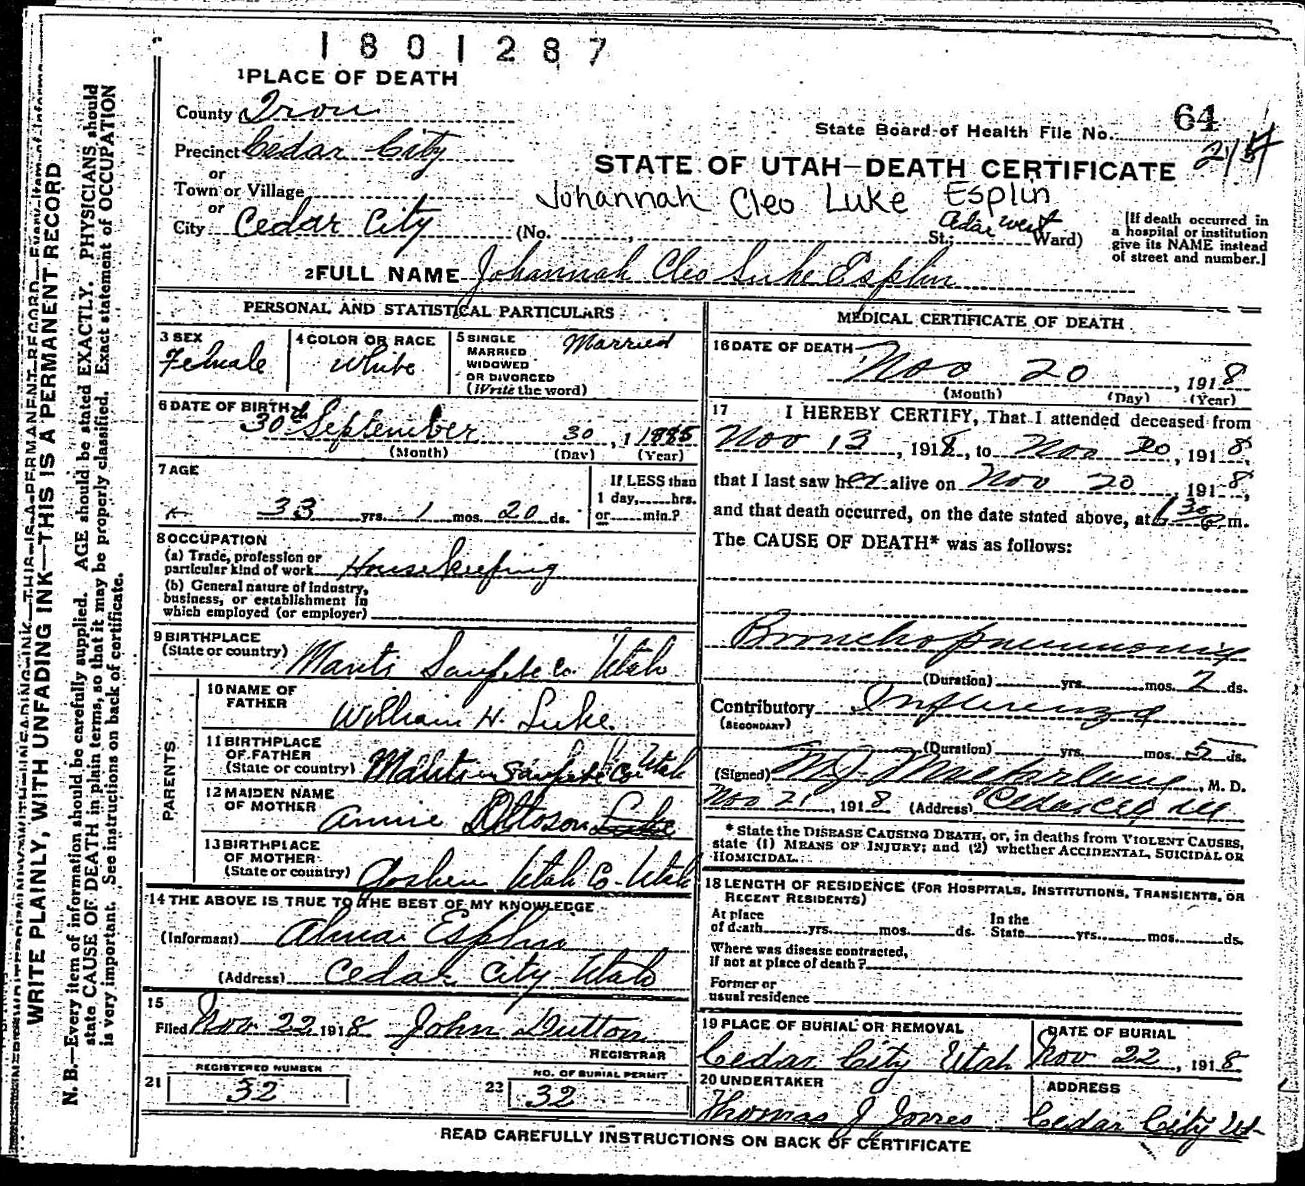 1801287
1 PLACE OF DEATH
County Iron
64
State Board of Health File No.
Precinct Cedar City
or
STATE OF UTAH—DEATH CERTIFICATE
Town or Village
or
Johannah Cleo Luke Esplin
City Cedar City (No. , St.; Cedar West Ward)
[If death occurred in
a hospital or institution
give its NAME instead
of street and number.]
2 FULL NAME Johannah Cleo Luke Esplin
PERSONAL AND STATISTICAL PARTICULARS
3 SEX
Female
4 COLOR OR RACE
White
5 SINGLE
MARRIED
WIDOWED
OR DIVORCED
(Write the word)
Married
6 DATE OF BIRTH
30th September 30, 1 1885
(Month) (Day) (Year)
7 AGE
33 yrs. 1 mos. 20 ds.
If LESS than
1 day, hrs.
or min.?
8 OCCUPATION
(a) Trade, profession or
particular kind of work Housekeeping
(b) General nature of industry,
business, or establishment in
which employed (or employer)
9 BIRTHPLACE
(State or country) Manti Sanpete Co Utah
PARENTS
10 NAME OF
FATHER William H. Luke
11 BIRTHPLACE
OF FATHER
(State or country) Manti Sanpete Co Utah
12 MAIDEN NAME
OF MOTHER Annie Ottoson Luke
13 BIRTHPLACE
OF MOTHER
(State or country) Goshen Utah Co. Utah
14 THE ABOVE IS TRUE TO THE BEST OF MY KNOWLEDGE
(Informant) Alma Esplin
(Address) Cedar City Utah
15
Filed Nov. 22 1918 John Dutton
REGISTRAR
21 REGISTERED NUMBER
32
22 NO. OF BURIAL PERMIT
32
MEDICAL CERTIFICATE OF DEATH
16 DATE OF DEATH
Nov 20, 1918
(Month) (Day) (Year)
17 I HEREBY CERTIFY, That I attended deceased from
Nov 13, 1918, to Nov 20, 1918,
that I last saw her alive on Nov 20, 1918,
and that death occurred, on the date stated above, at 6 30 m.
The CAUSE OF DEATH* was as follows:
Bronchopneumonia
(Duration) yrs. mos. 2 ds.
Contributory Influenza
(SECONDARY)
(Duration) yrs. mos. 5 ds.
(Signed) M. J. Macfarlane, M. D.
Nov 21, 1918 (Address) Cedar City
* State the DISEASE CAUSING DEATH, or, in deaths from VIOLENT CAUSES,
state (1) MEANS OF INJURY; and (2) whether ACCIDENTAL, SUICIDAL OR
HOMICIDAL.
18 LENGTH OF RESIDENCE (FOR HOSPITALS, INSTITUTIONS, TRANSIENTS, OR
RECENT RESIDENTS)
At place
of death yrs. mos. ds.
In the
State yrs. mos. ds.
Where was disease contracted,
If not at place of death?
Former or
usual residence
19 PLACE OF BURIAL OR REMOVAL
Cedar City Utah
DATE OF BURIAL
Nov 22, 1918
20 UNDERTAKER
Thomas J Jones
ADDRESS
Cedar City Ut
READ CAREFULLY INSTRUCTIONS ON BACK OF CERTIFICATE
WRITE PLAINLY, WITH UNFADING INK—THIS IS A PERMANENT RECORD
N. B.—Every item of information should be carefully supplied. AGE should be stated EXACTLY. PHYSICIANS should
state CAUSE OF DEATH in plain terms, so that it may be properly classified. Exact statement of OCCUPATION
is very important. See instructions on back of certificate.